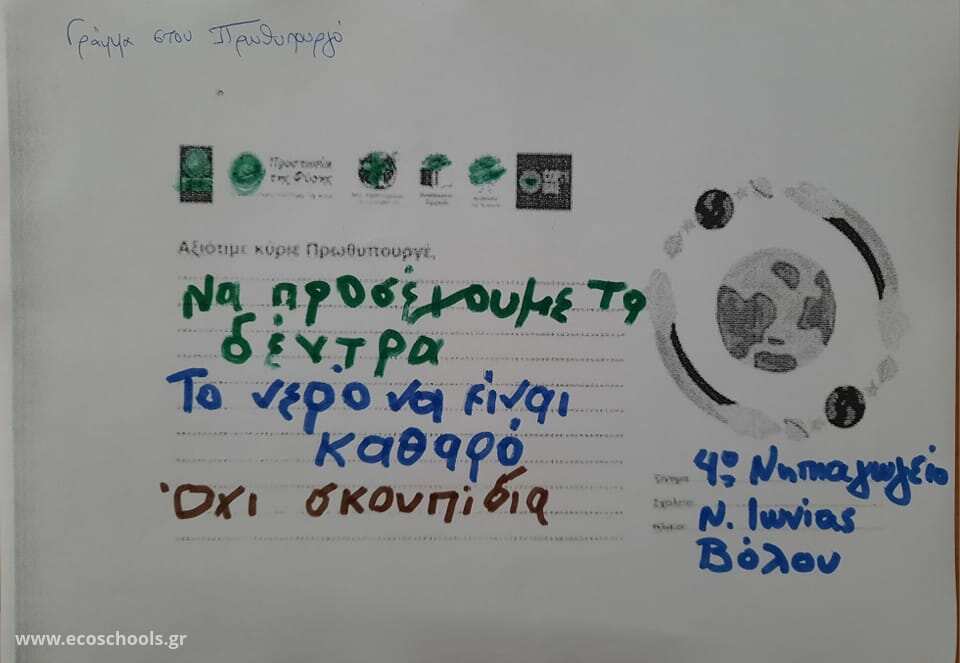 Γράμμα στον Πρωθυπουργό
Προστασία
της Φύσης
Αξιότιμε κύριε Πρωθυπουργέ,
Να προσέχουμε τα
δέντρα
Το νερό να είναι
καθαρό
Όχι σκουπίδια
4ο Νηπιαγωγείο
Ν. Ιωνίας
Βόλου
www.ecoschools.gr